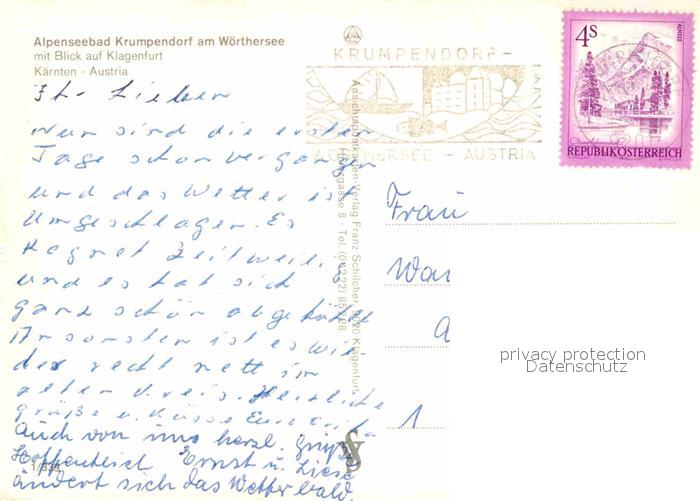 Alpenseebad Krumpendorf am Wörthersee
mit Blick auf Klagenfurt
Kärnten - Austria
KRUMPENDORF -
WÖRTHERSEE - AUSTRIA
4S
ALMSEE
REPUBLIK ÖSTERREICH
Ansichtspostkarten-Verlag Franz Schilcher, 9020 Klagenfurt
gasse 8 - Tel. (04222) 85
Lieben
Nun sind die ersten
Tage schon vergangen
und das Wetter ist
umgeschlagen. Es
Regnet Zeitweilig
und es hat sich
ganz schön abgekühlt
Ansonsten ist es wie
der recht nett im
alten Kreis. Herzliche
grüße u. Küsse Eure
auch von uns herzl. Grüße
Hoffentlich Ernst u. Liesl
ändert sich das Wetter bald.
Frau
1
privacy protection
Datenschutz